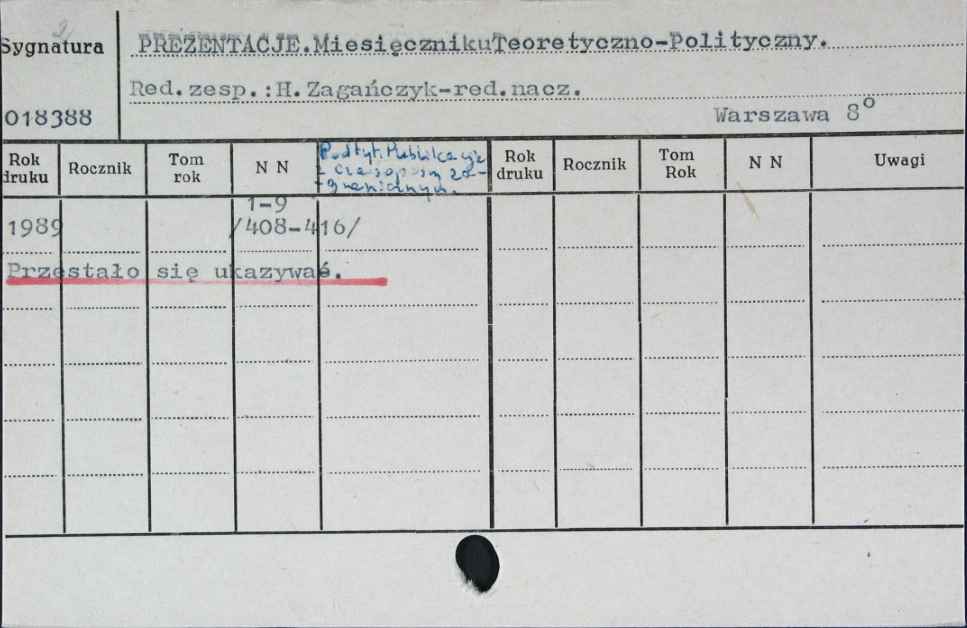 Sygnatura
PREZENTACJE.MiesięcznikuTeoretyczno-Polityczny.
Red.zesp.:H.Zagańczyk-red.nacz.
018388
Warszawa 8º
Rok druku Rocznik Tom rok N N Podtyt. Publikacje Rok druku Rocznik Tom Rok N N Uwagi
z czasopism za-
granicznych.
1-9
1989 /408-416/
Przestało się ukazywać.